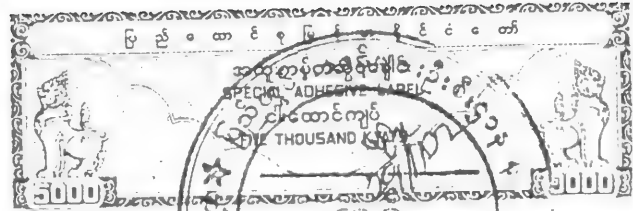 ပြည်ထောင်စုမြန်မာနိုင်ငံတော်
အထူးကပ်တံဆိပ်ခေါင်း
SPECIAL ADHESIVE LABEL
ငါးထောင်ကျပ်
FIVE THOUSAND KYATS
5000 5000